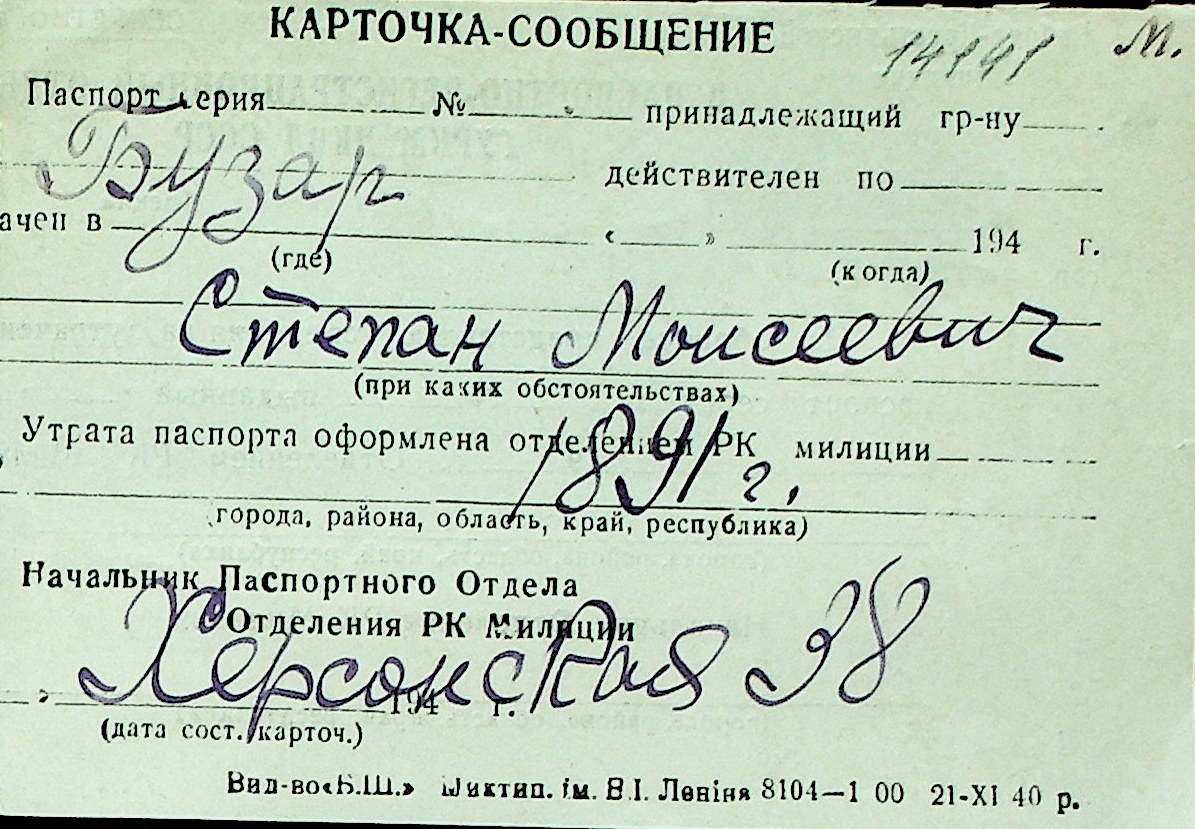 КАРТОЧКА-СООБЩЕНИЕ 14141 М.
Паспорт ерия № принадлежащий гр-ну
Бузар действителен по
ачен в « » 194 г.
(где) (когда)
Степан Моисеевич
(при каких обстоятельствах)
Утрата паспорта оформлена отделением РК милиции
1891 г.
города, района, область, край, республика)
Начальник Паспортного Отдела
Отделения РК Милиции
Херсонская 38
194 г.
(дата сост. карточ.)
Вид-во «Б.Ш.» ім. В.І. Леніна 8104—1 00 21-XI 40 р.